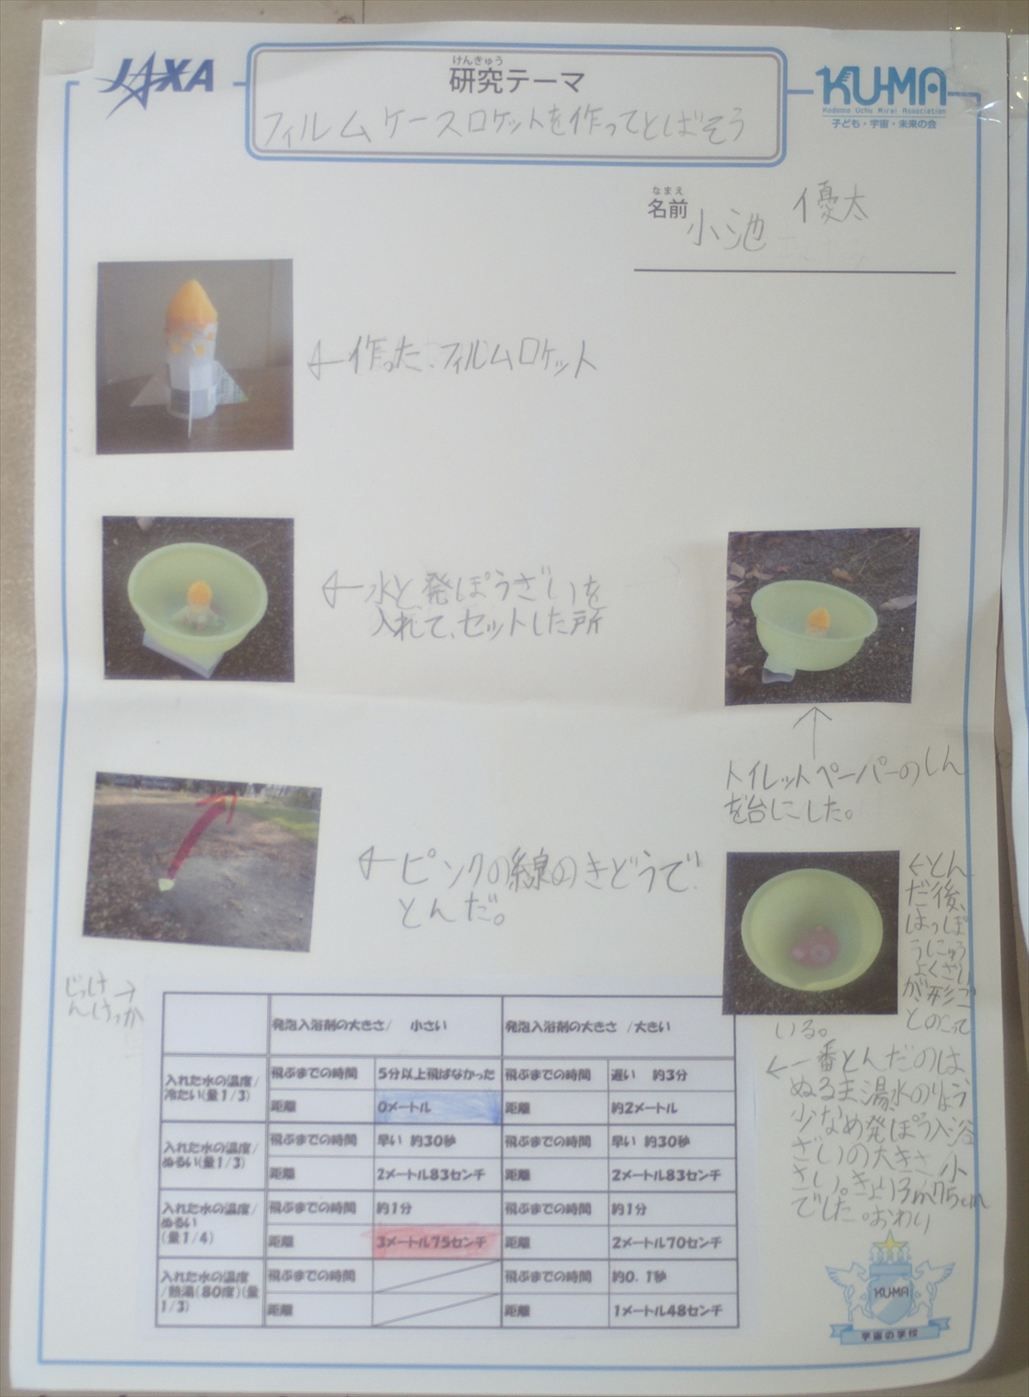 JAXA
けんきゅう
研究テーマ
フィルムケースロケットを作ってとばそう
KU-MA
Kodomo Uchu Mirai Association
子ども・宇宙・未来の会
なまえ
名前
小池 優太
←作った、フィルムロケット
←水と、発ぽうざいを
入れて、セットした所
↑
トイレットペーパーのしん
を台にした。
←ピンクの線のきどうで
とんだ。
←とん
だ後、
はっぽ
うにゅう
よくざい
が形ご
とのこって
いる。
じっけ→
んけっか
発泡入浴剤の大きさ/ 小さい
発泡入浴剤の大きさ /大きい
入れた水の温度/
冷たい(量1/3)
飛ぶまでの時間 5分以上飛ばなかった 飛ぶまでの時間 遅い 約3分
距離 0メートル 距離 約2メートル
入れた水の温度/
ぬるい(量1/3)
飛ぶまでの時間 早い 約30秒 飛ぶまでの時間 早い 約30秒
距離 2メートル83センチ 距離 2メートル83センチ
入れた水の温度/
ぬるい
(量1/4)
飛ぶまでの時間 約1分 飛ぶまでの時間 約1分
距離 3メートル75センチ 距離 2メートル70センチ
入れた水の温度
/熱湯(80度)(量
1/3)
飛ぶまでの時間 飛ぶまでの時間 約0.1秒
距離 距離 1メートル48センチ
←一番とんだのは
ぬるま湯、水のりょう
少なめ発ぽう入浴
ざいの大きさ、小
さい。きょり3m75cm
でした。おわり
KUMA
宇宙の学校